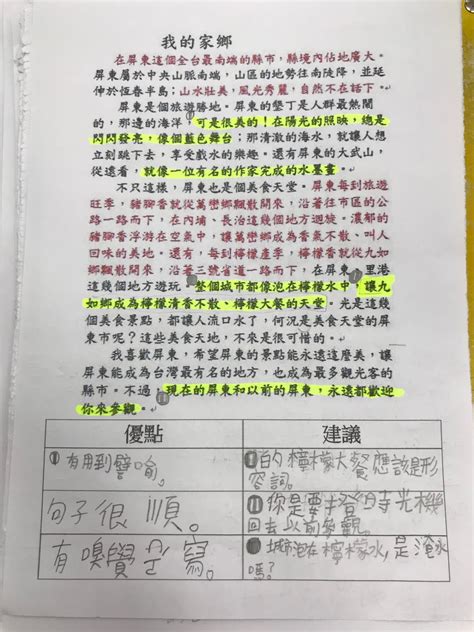 我的家鄉
在屏東這個全台最南端的縣市，縣境內佔地廣大。
屏東屬於中央山脈南端，山區的地勢往南陡降，並延
伸於恆春半島；山水壯美，風光秀麗，自然不在話下。
屏東是個旅遊勝地。屏東的墾丁是人群最熱鬧
的，那邊的海洋，可是很美的！在陽光的照映，總是
閃閃發亮，像個藍色舞台；那清澈的海水，就讓人想
立刻跳下去，享受戲水的樂趣。還有屏東的大武山，
從遠看，就像一位有名的作家完成的水墨畫。
不只這樣，屏東也是個美食天堂。屏東每到旅遊
旺季，豬腳香就從萬巒鄉飄散開來，沿著往市區的公
路一路而下，在內埔、長治這幾個地方迴旋。濃郁的
豬腳香浮游在空氣中，讓萬巒鄉成為香氣不散、叫人
回味的美地。還有，屏東每到檸檬產季，檸檬香就從九如
鄉飄散開來，沿著三號省道一路而下，在屏東、里港
這幾個地方遊玩。整個城市都像泡在檸檬水中，讓九
如鄉成為檸檬清香不散、檸檬大餐的天堂。光是這幾
個美食景點，都讓人流口水了，何況是美食天堂的屏
東市呢？這些美食天地，不來是很可惜的。
我喜歡屏東，希望屏東的景點能永遠這麼美，讓
屏東能成為台灣最有名的地方，也成為最多觀光客的
縣市。不過，現在的屏東和以前的屏東，永遠都歡迎
你來參觀。
優點
建議
有用到譬喻。
的檸檬大餐應該是形
容詞。
句子很順。
你是要搭時光機
回去以前參觀。
有嗅覺描寫。
城市泡在檸檬水，是淹水
嗎？